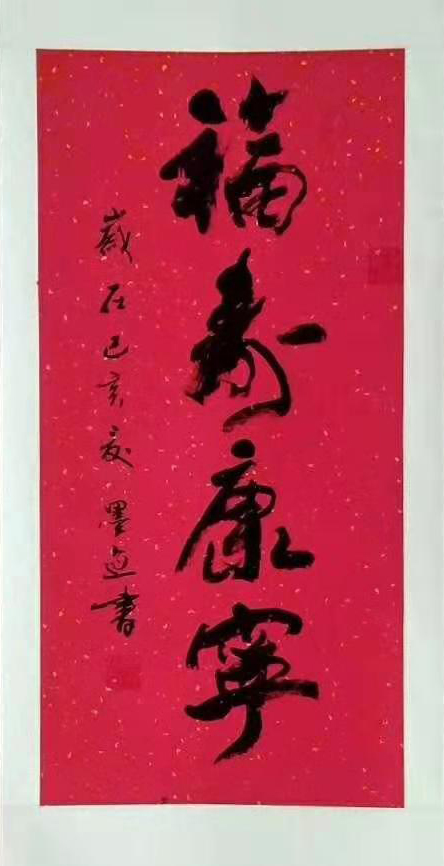 福寿康寧
歲在己亥夏墨迹書